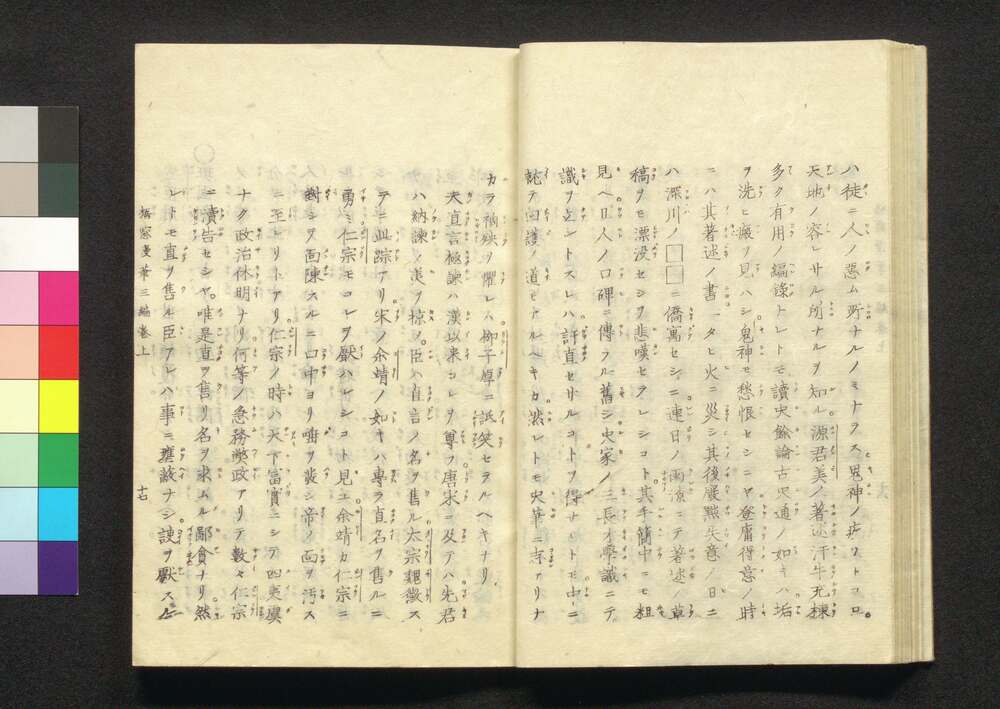 ハ徒ニ人ノ惡ム所ナルノミナラス鬼神ノ疾ウトコロ
天地ノ容レサル所ナルヲ知ル源君美ノ著述汗牛充棟
多ク有用ノ編錄トレトモ讀史餘論古史通ノ如キハ垢
ヲ洗ヒ瘢ヲ見ハシ鬼神モ愁恨セシニヤ登庸得意ノ時
ニハ其著述ノ書一タヒ火ニ災シ其後嚴黜失意ノ日ニ
ハ深川ノ□□ニ僑寓セシニ連日ノ雨ニテ著述ノ草
稿ヲモ漂没セシヲ悲嘆セラレシコト其手簡中ニモ粗
見ヘ日人ノ口碑ニ傳フル舊シ史家ノ三長才學識ニテ
識ヲ上ントスレハ訐直セサルコトヲ得ナルトモ中ニ
就テ回護ノ道モアルヘキカ然レトモ史筆ニ志アリナ
カラ禍殃ヲ懼レハ柳子厚ニ詆笑セラルヘキナリ
夫直言極諫ハ漢以来コレヲ尊ヲ唐宋ニ及テハ先君
ハ納諫ノ美ヲ掠メ臣ハ直言ノ名ヲ售ル太宗魏徵ス
テニ此踪アリ宋ノ余靖ノ如キハ專ラ直名ヲ售ルニ
勇ミ仁宗モコレヲ厭ハレシコト見ユ余靖カ仁宗ニ
對シテ面陳スルニ口中ヨリ唾ヲ發シ帝ノ面ヲ汚ス
ニ至レリトアリ仁宗ノ時ハ天下富實ニシテ四夷虞
ナク政治休明ナリ何等ノ急務弊政アリテ數々仁宗
ニ瀆告セシヤ唯是直ヲ售リ名ヲ求ムル鄙貪ナリ然
レトモ直ヲ售ル臣アレハ事ニ壅蔽ナシ諫ヲ厭ス
梧窓漫筆三編卷上
十五